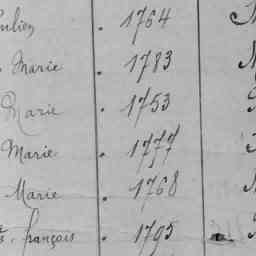 ulien . 1764
Marie . 1783
Marie . 1753
Marie . 1777
Marie . 1768
françois . 1795